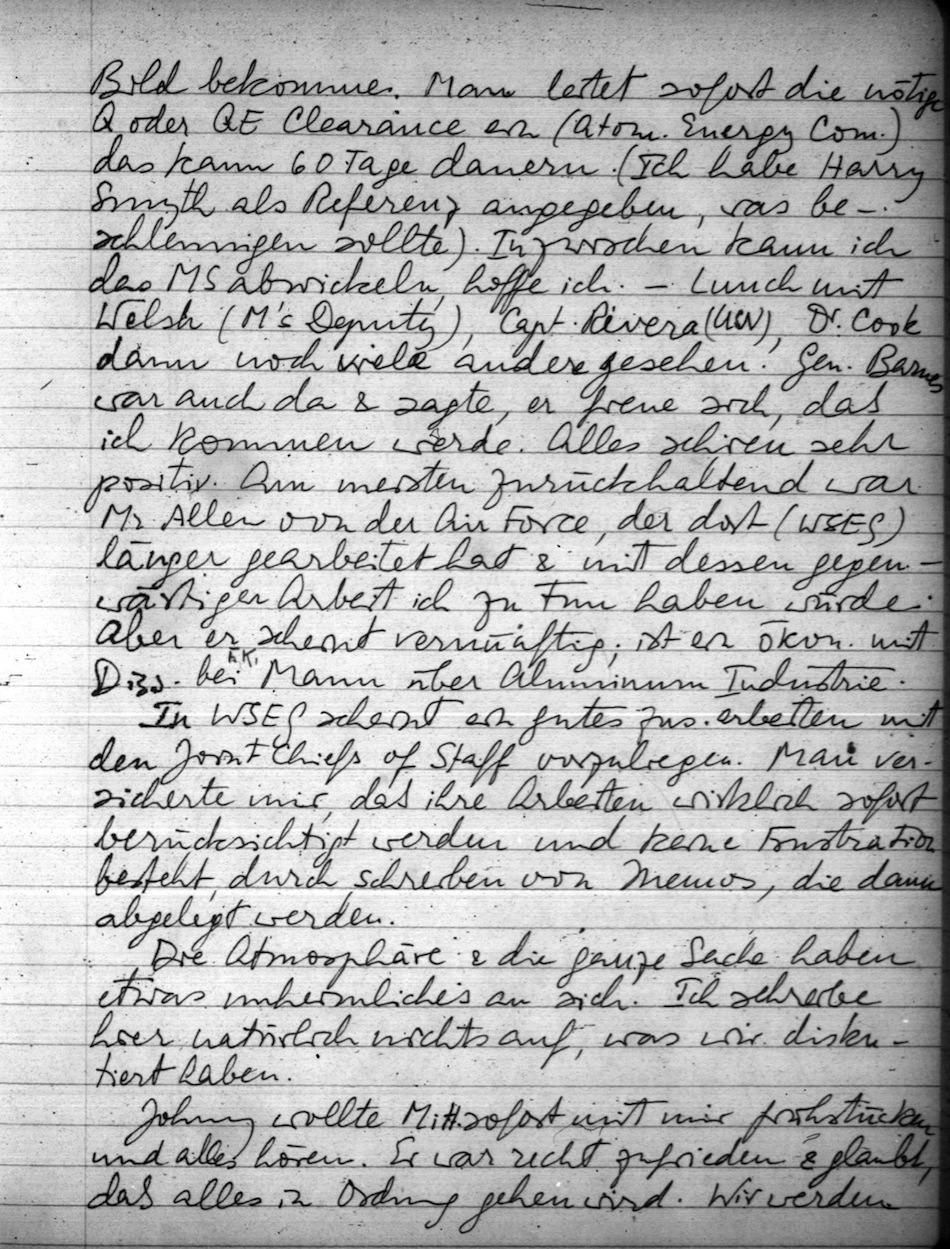 Bild bekomme. Man leitet sofort die nötige
Q oder QE Clearance ein (Atom. Energy Com.)
das kann 60 Tage dauern. (Ich habe Harry
Smyth als Referenz angegeben, was be-
schleunigen sollte). Inzwischen kann ich
das MS abwickeln, hoffe ich. – Lunch mit
Welsh (M's Deputy), Capt. Rivera (USN), Dr. Cook
dann noch viele andere gesehen. Gen. Barnes
war auch da & sagte, er freue sich, das
ich kommen werde. Alles schien sehr
positiv. Am meisten zurückhaltend war
Mr Allen von der Air Force, der dort (WSEG)
länger gearbeitet hat & mit dessen gegen-
wärtiger Arbeit ich zu tun haben würde.
Aber er scheint vernünftig; ist ein ökon. mit
Diss. bei Mann über Aluminum Industrie.
In WSEG scheint ein gutes zus.arbeiten mit
den Joint Chiefs of Staff vorzuliegen. Man ver-
sicherte mir, das ihre Arbeiten wirklich sofort
berücksichtigt werden und keine Frustration
besteht, durch schreiben von Memos, die dann
abgelegt werden.
Die Atmosphäre & die ganze Sache haben
etwas unheimliches an sich. Ich schreibe
hier natürlich nichts auf, was wir disku-
tiert haben.
Johnny wollte Mitt. sofort mit mir frühstücken
und alles hören. Er war recht zufrieden & glaubt,
das alles in Ordnung gehen wird. Wir werden